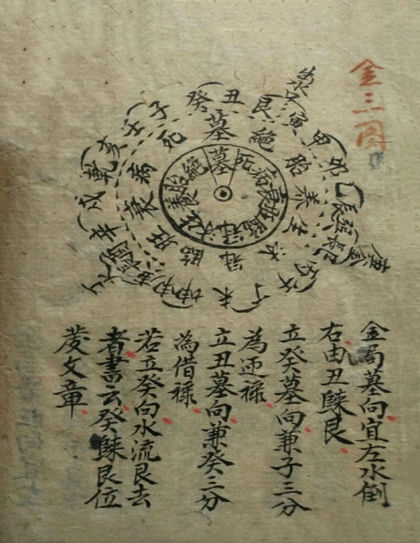 金三局
癸 丑 艮 寅 甲 卯 乙 辰 巽 巳
丁 未 坤 申 庚
辛 戌 乾 亥 壬 子
墓 絶 胎 養 生
冠 臨 旺 衰 病 死
墓 死 病 衰 旺 臨 冠
養 胎 絶
金局墓向宜左水倒
右由丑歸艮
立癸墓向兼子三分
為迎祿
立丑墓向兼癸三分
為借祿
若立癸向水流艮去
者書云癸歸艮位
發文章